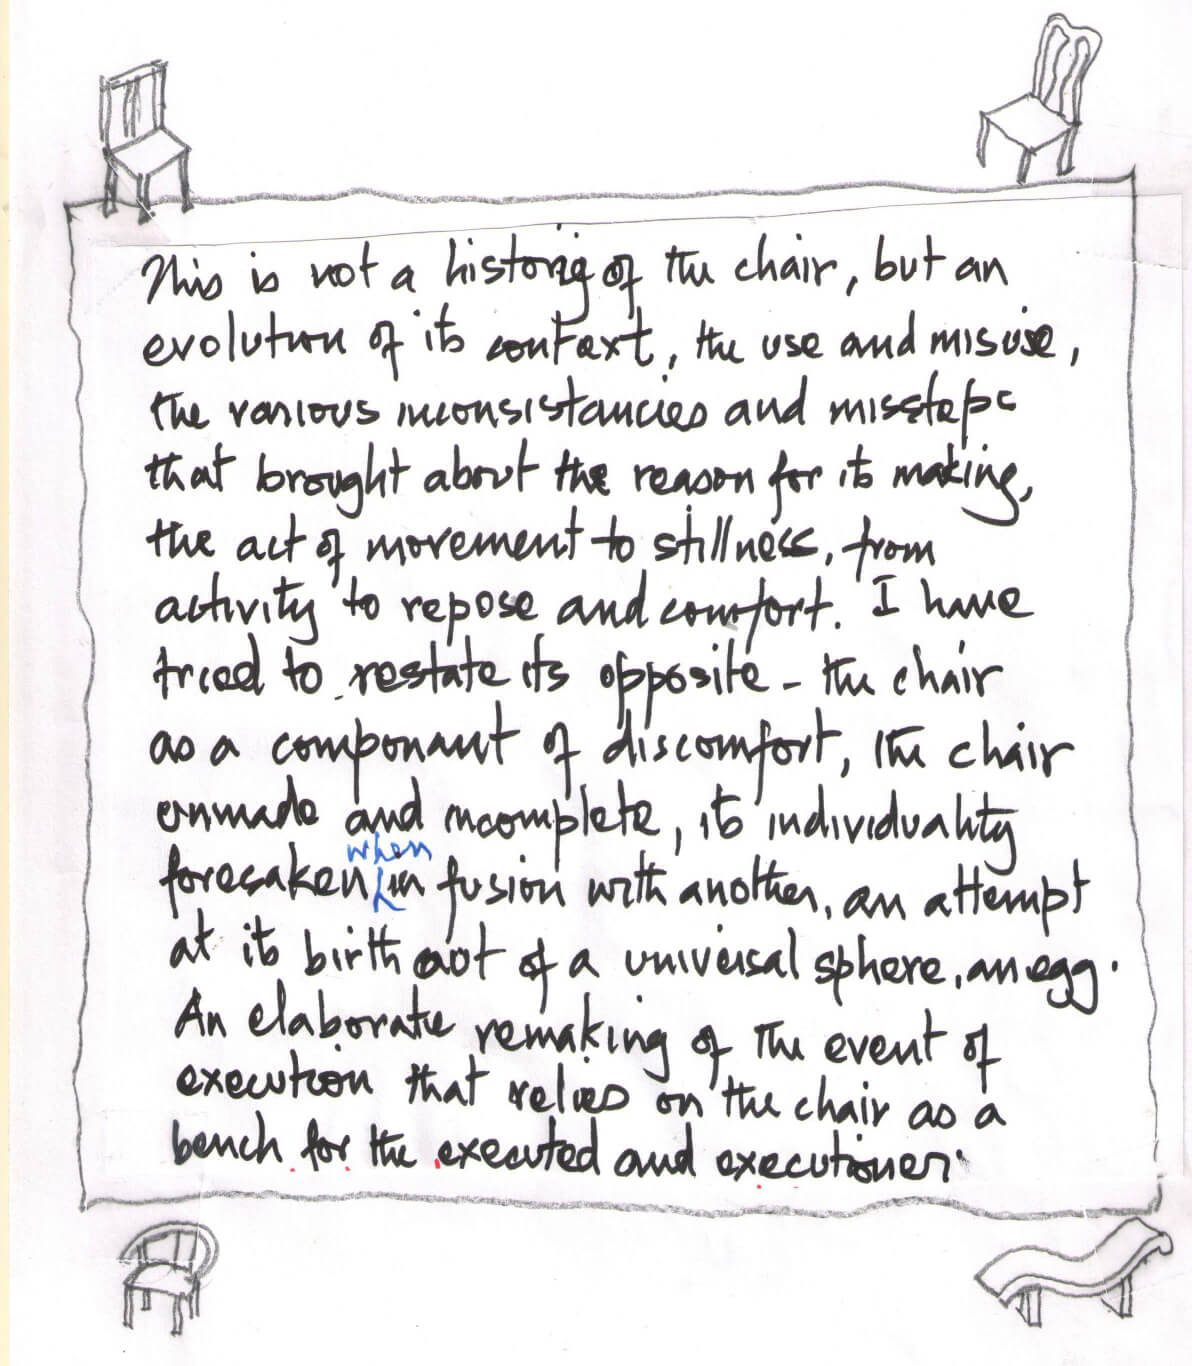 This is not a history of the chair, but an
evolution of its context, the use and misuse,
the various inconsistancies and missteps
that brought about the reason for its making,
the act of movement to stillness, from
activity to repose and comfort. I have
tried to restate its opposite - the chair
as a componant of discomfort, the chair
unmade and incomplete, its individuality
foresaken when in fusion with another, an attempt
at its birth out of a universal sphere, an egg.
An elaborate remaking of the event of
execution that relies on the chair as a
bench for the executed and executioner.